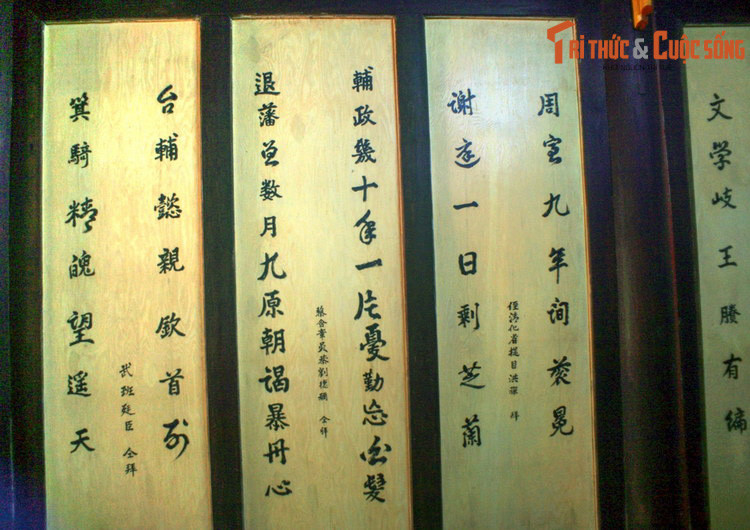 文学岐王賸有編
周九年衮冕
谢庭一日剩芝蘭
拜
輔政幾十年一片憂勤忘白髮
退藩数月九原朝谒暴丹心
仝拜
台輔懿親欽首列
箕騎精魄望遥天
武班廷臣 仝拜
TRI THỨC & CUỘC SỐNG